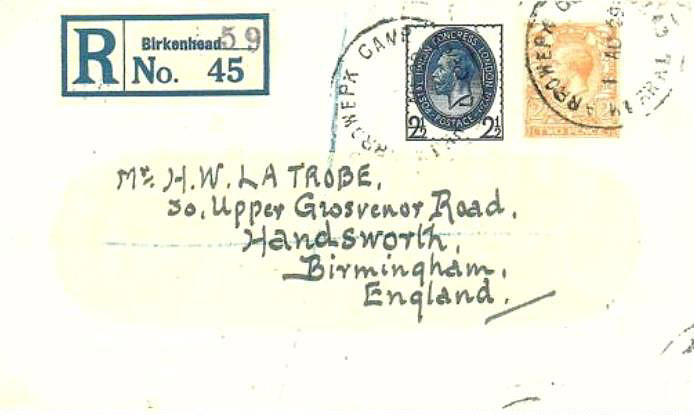 R
Birkenhead 59
No. 45
ARROWEPK CAMP
POSTAL UNION CONGRESS LONDON 1929
POSTAGE
2½ 2½
TWO PENCE
Mr. H. W. LA TROBE,
30, Upper Grosvenor Road,
Handsworth,
Birmingham,
England.